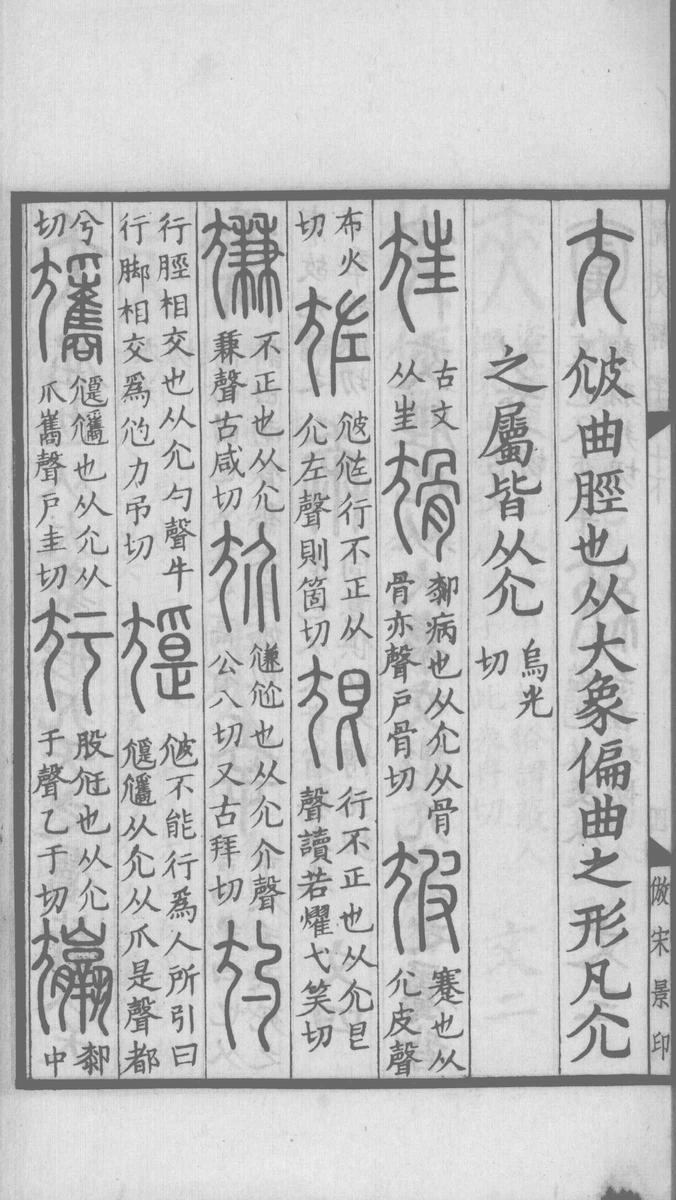 尢 㝿曲脛也从大象偏曲之形凡尣
之屬皆从尣 烏光切
古文从㞷 尳 厀病也从尣从骨骨亦聲戶骨切 㝿 蹇也从尣皮聲
布火切 㝾 㝿㝾行不正从尣左聲則箇切 行不正也从尣皀聲讀若燿弋笑切
尲 不正也从尣兼聲古咸切 尬 尲尬也从尣介聲公八切又古拜切 尥
行脛相交也从尣勺聲牛行腳相交爲尥力弔切 㝿不能行爲人所引曰从尣从爪是聲都
兮切 也从尣从爪巂聲戶圭切 股也从尣于聲乙于切 厀中
倣宋景印